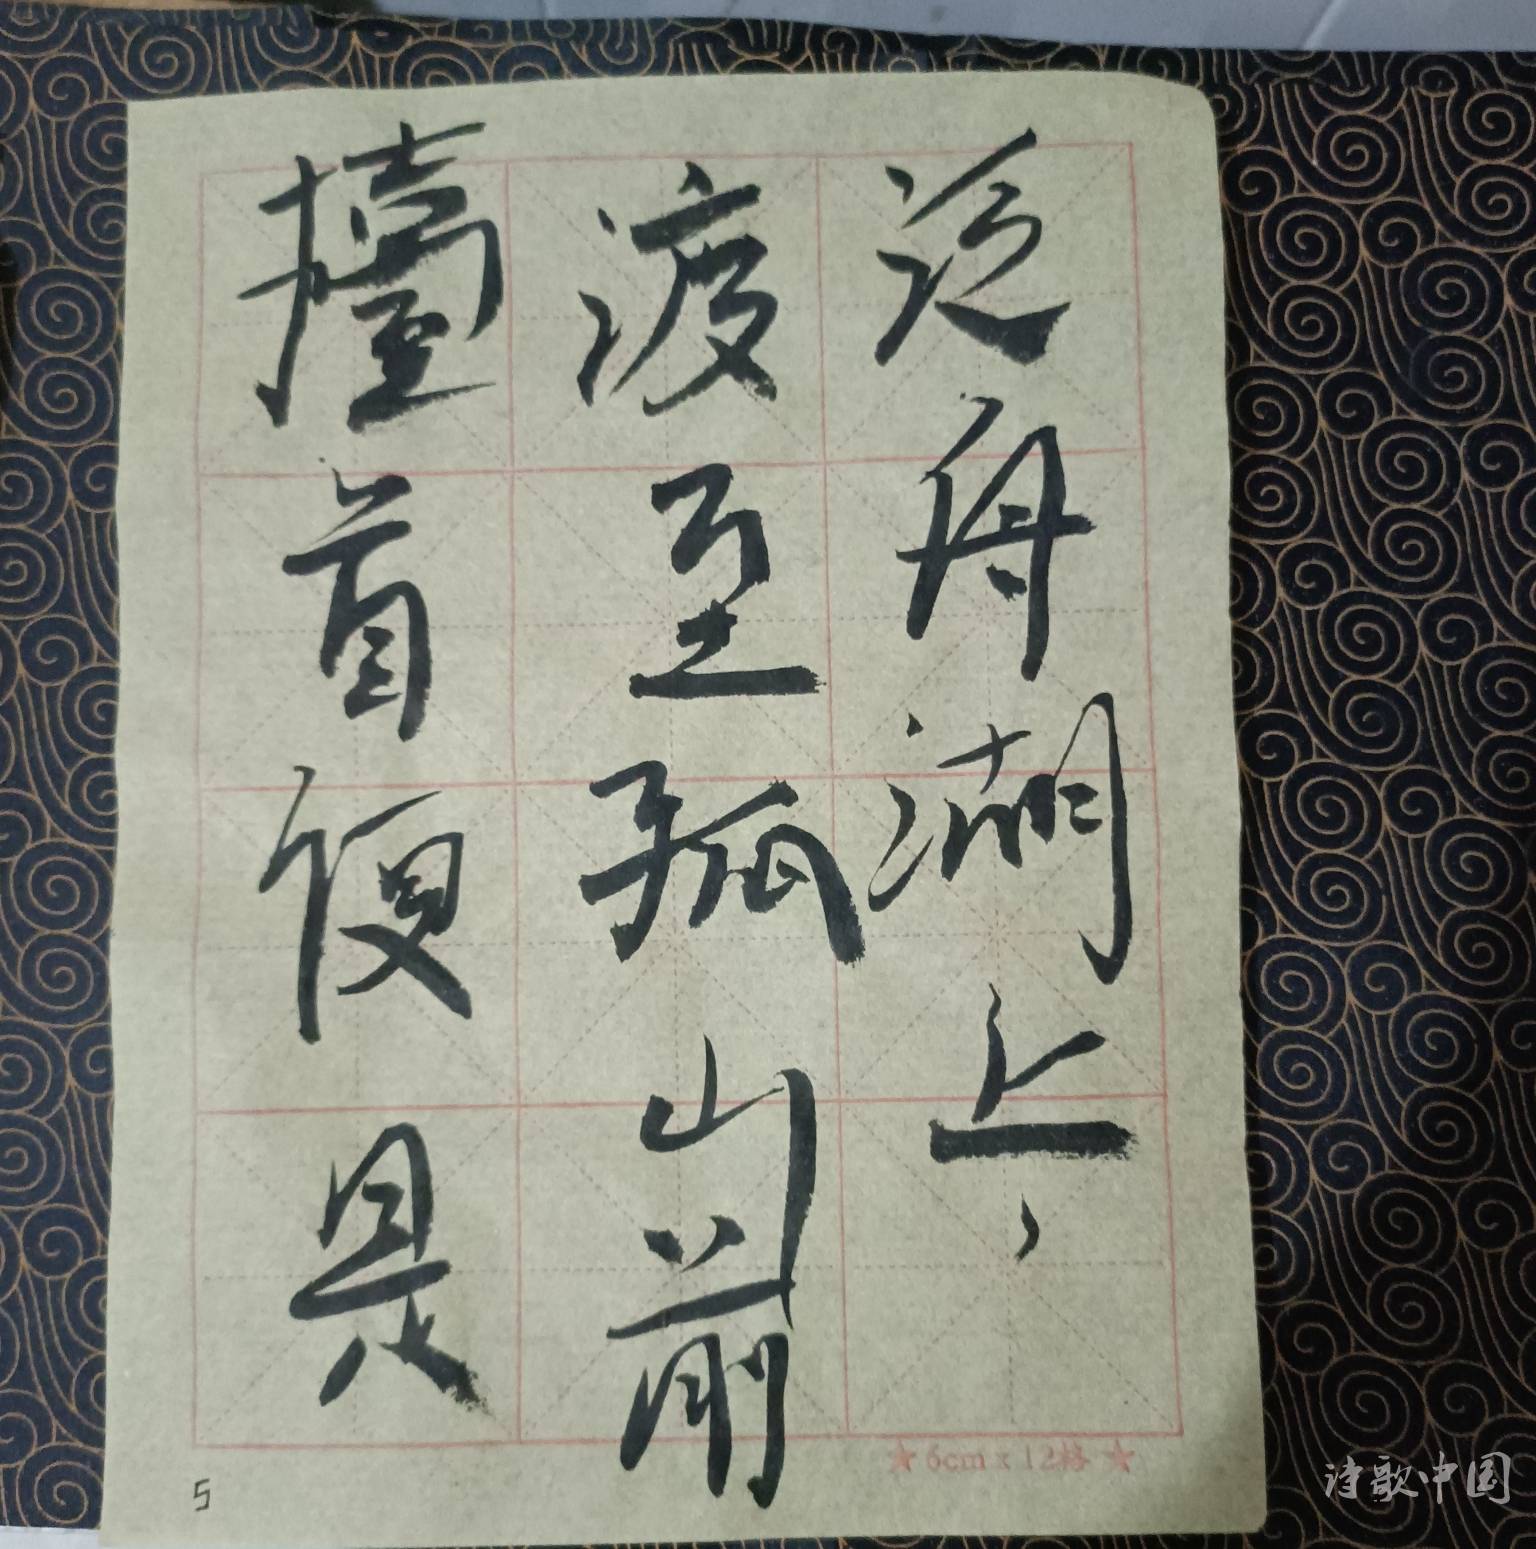 泛舟湖上、
渡至孤山前
擡首便是
★6cm x 12格★
5
诗歌中国